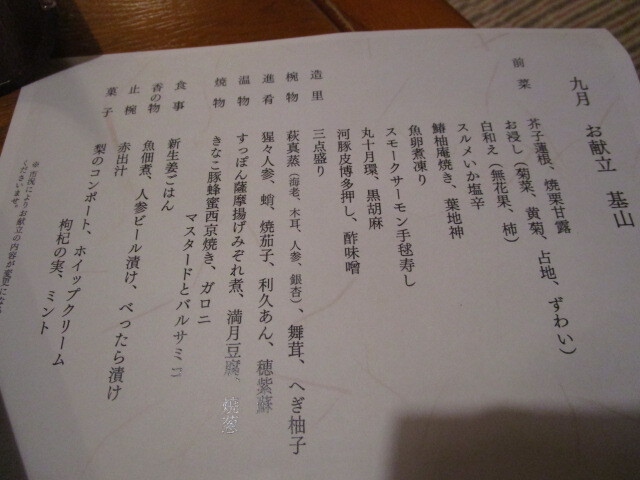 九月　お献立　基山
前菜　芥子蓮根、焼栗甘露
お浸し（菊菜、黄菊、占地、ずわい）
白和え（無花果、柿）
スルメいか塩辛
鰆柚庵焼き、葉地神
魚卵煮凍り
スモークサーモン手毬寿し
丸十月環、黒胡麻
河豚皮博多押し、酢味噌
造里　三点盛り
椀物　萩真蒸（海老、木耳、人参、銀杏）、舞茸、へぎ柚子
進肴　猩々人参、蛸、焼茄子、利久あん、穂紫蘇
温物　すっぽん薩摩揚げみぞれ煮、満月豆腐、焼葱
焼物　きなこ豚蜂蜜西京焼き、ガロニ
マスタードとバルサミコ
食事　新生姜ごはん
香の物　魚佃煮、人参ビール漬け、べったら漬け
止椀　赤出汁
菓子　梨のコンポート、ホイップクリーム
枸杞の実、ミント
※ 出茂によりお献立の内容が変更になる
くださいませ。